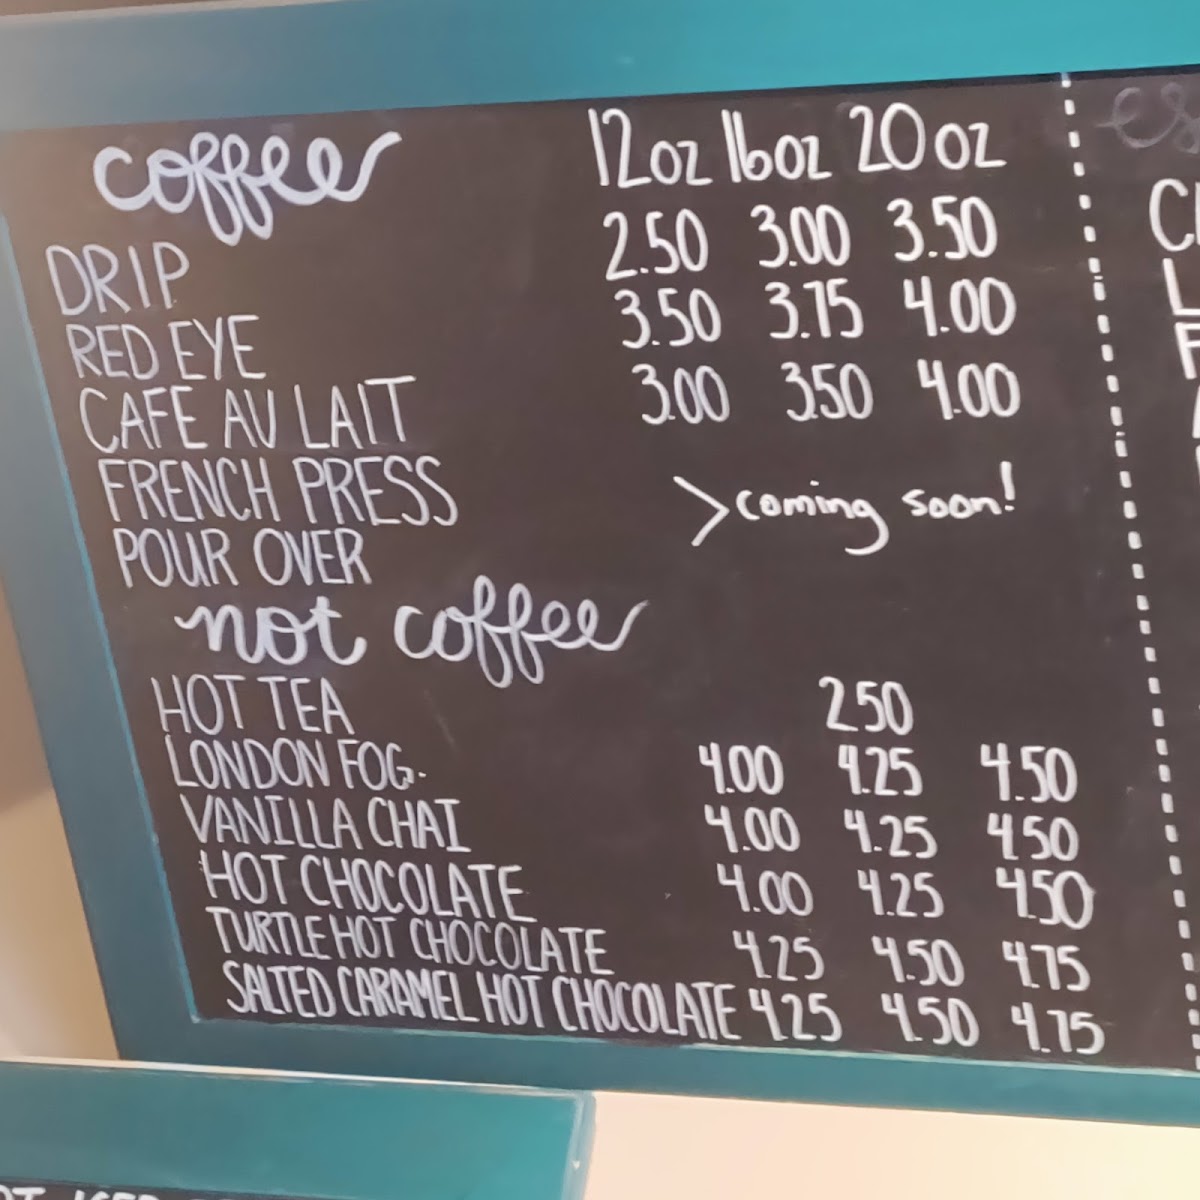 coffee 12oz 16oz 20oz
DRIP 2.50 3.00 3.50
RED EYE 3.50 3.75 4.00
CAFE AU LAIT 3.00 3.50 4.00
FRENCH PRESS
POUR OVER >coming soon!
not coffee
HOT TEA 2.50
LONDON FOG 4.00 4.25 4.50
VANILLA CHAI 4.00 4.25 4.50
HOT CHOCOLATE 4.00 4.25 4.50
TURTLE HOT CHOCOLATE 4.25 4.50 4.75
SALTED CARAMEL HOT CHOCOLATE 4.25 4.50 4.75